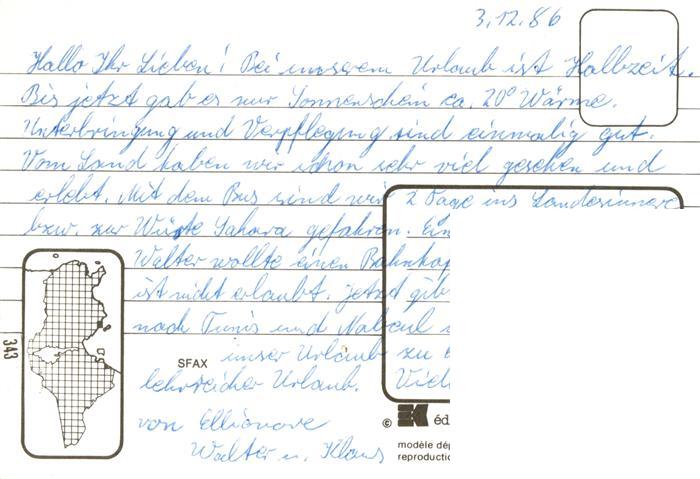 3.12.86
Hallo Ihr Lieben! Bei unserem Urlaub ist Halbzeit.
Bis jetzt gab es nur Sonnenschein ca. 20° Wärme.
Unterbringung und Verpflegung sind einmalig gut.
Vom Land haben wir schon sehr viel gesehen und
erlebt. Mit dem Bus sind wir 2 Tage ins Landesinnere
bzw. zur Wüste Sahara gefahren.
Walter wollte einen
ist nicht erlaubt. jetzt
nach Tunis und Nabeul
unser Urlaub zu
lehrreicher Urlaub.
von Ellionore
Walter u. Klaus
343
SFAX
© EK éd
modèle dép
reproductio